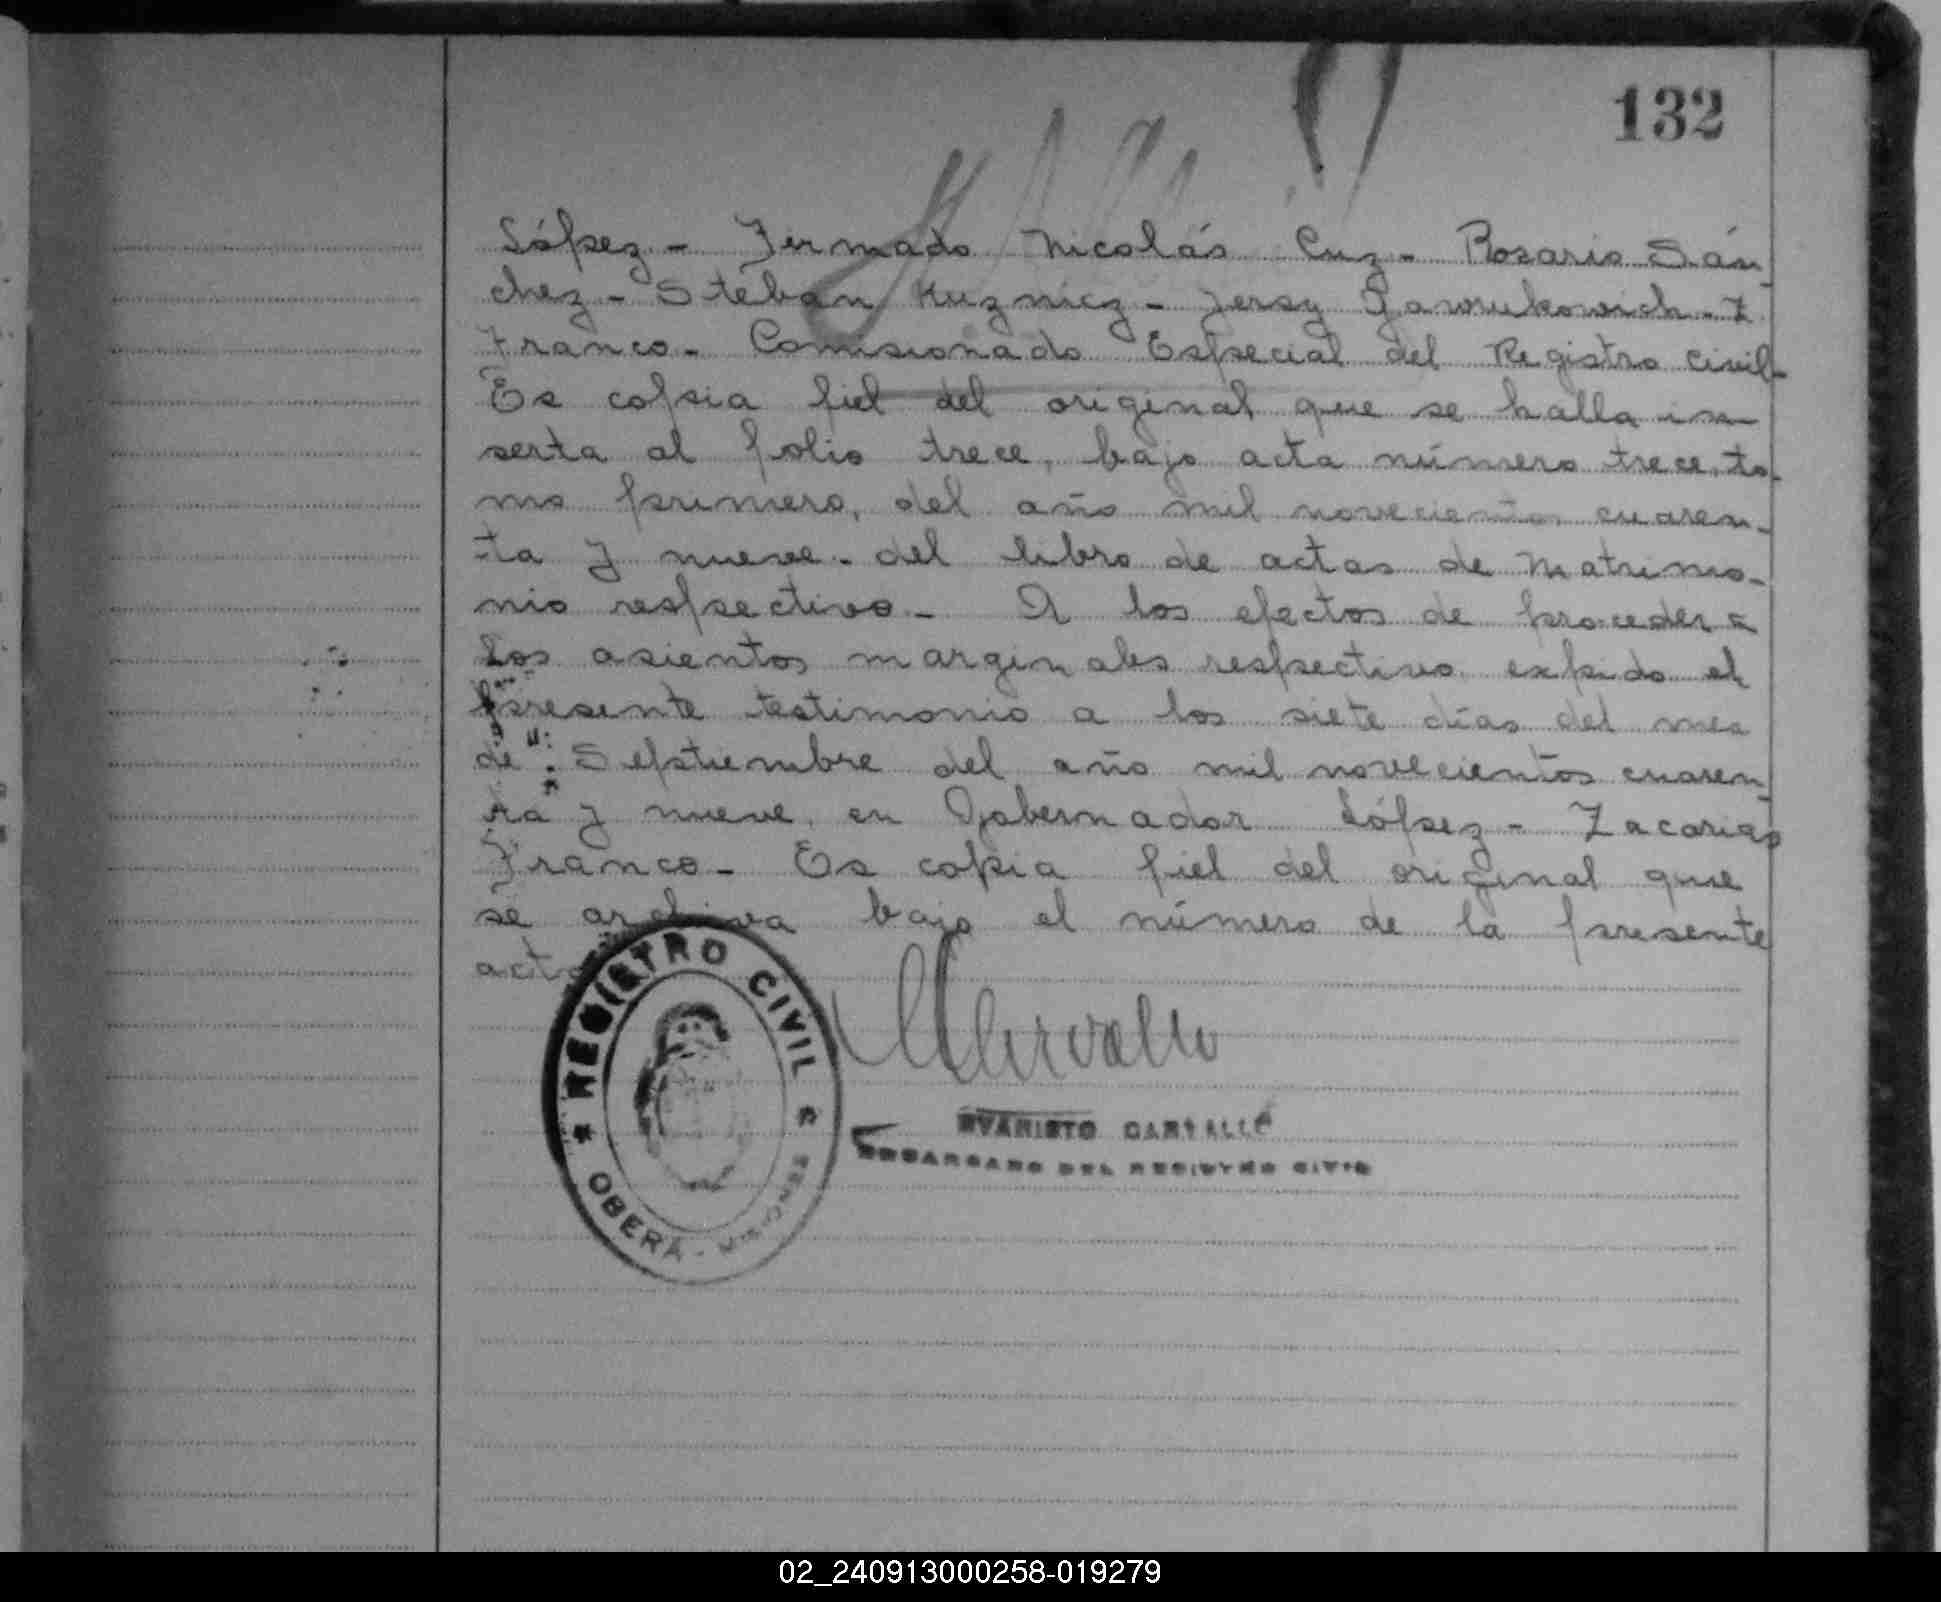 132
López - Firmado Nicolás Cruz - Rosario Sán
chez - Steban Kuznicz - Jersy Gawrukowich - Z
Franco - Comisionado Especial del Registro Civil -
Es copia fiel del original que se halla in
serta al folio trece, bajo acta número trece, to-
mo primero, del año mil novecientos cuaren-
ta y nueve - del libro de actas de Matrimo-
nio respectivo - A los efectos de proceder a
los asientos marginales respectivo expido el
presente testimonio a los siete días del mes
de Septiembre del año mil novecientos cuaren-
ta y nueve, en Gobernador López - Zacarias
Franco - Es copia fiel del original que
se archiva bajo el número de la presente
acta
REGISTRO CIVIL
OBERÁ - MISIONES
EVARISTO CARVALLO
ENCARGADO DEL REGISTRO CIVIL
02_240913000258-019279